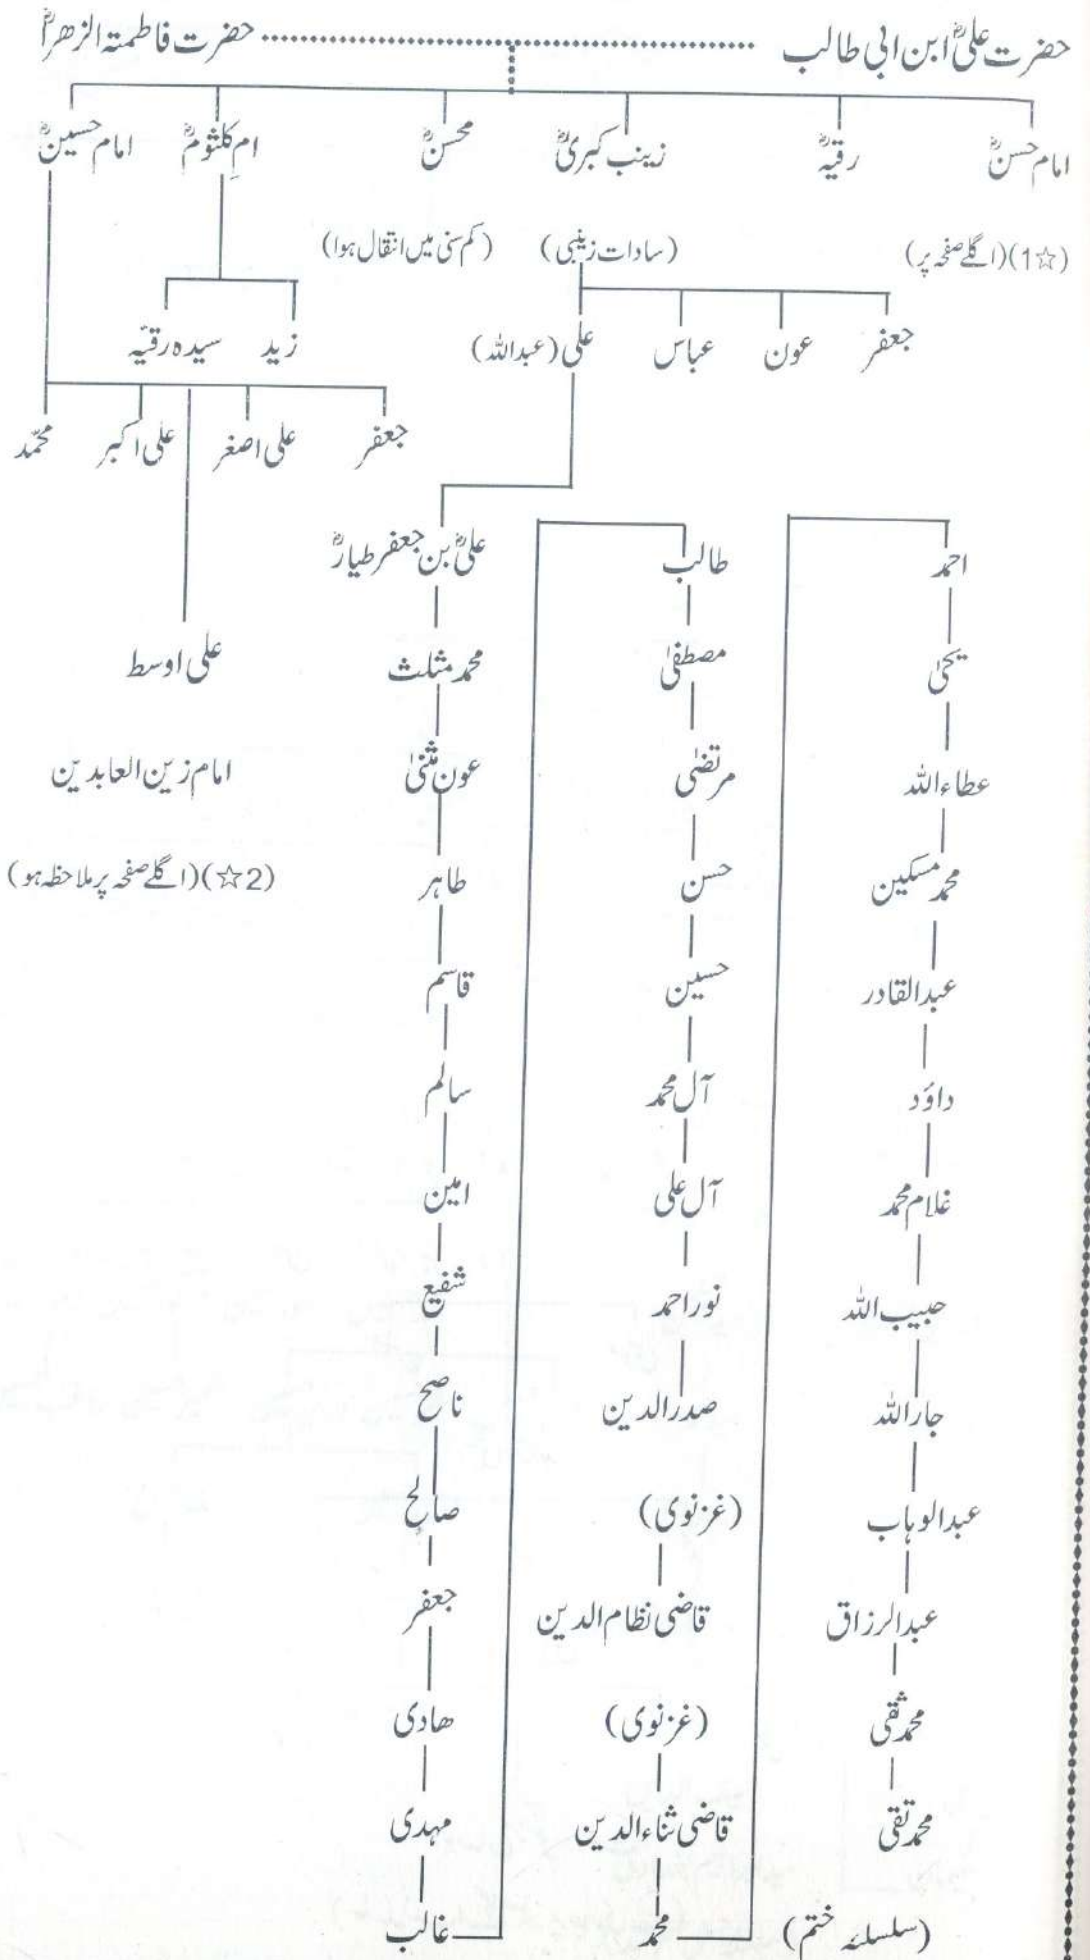 حضرت علیؓ ابن ابی طالب ........................ حضرت فاطمتہ الزھراؓ
امام حسنؓ رقیہؓ زینب کبریٰؓ محسنؓ امِ کلثومؓ امام حسینؓ
(☆1)(اگلے صفحہ پر) (سادات زینبی) (کم سنی میں انتقال ہوا)
جعفر عون عباس علی (عبداللہ) زید سیدہ رقیّہ
جعفر علی اصغر علی اکبر محمّد
علیؓ بن جعفر طیارؓ
محمد مثلث
عون مثنیٰ
طاہر
قاسم
سالم
امین
شفیع
ناصح
صالح
جعفر
ھادی
مہدی
غالب
علی اوسط
امام زین العابدین
(☆2)(اگلے صفحہ پر ملاحظہ ہو)
طالب
مصطفیٰ
مرتضٰی
حسن
حسین
آل محمد
آل علی
نور احمد
صدرالدین
(غزنوی)
قاضی نظام الدین
(غزنوی)
قاضی ثناءالدین
محمد
احمد
یحیٰ
عطاءاللہ
محمد مسکین
عبدالقادر
داؤد
غلام محمد
حبیب اللہ
جاراللہ
عبدالوہاب
عبدالرزاق
محمد ثقی
محمد تقی
(سلسلہ ختم)